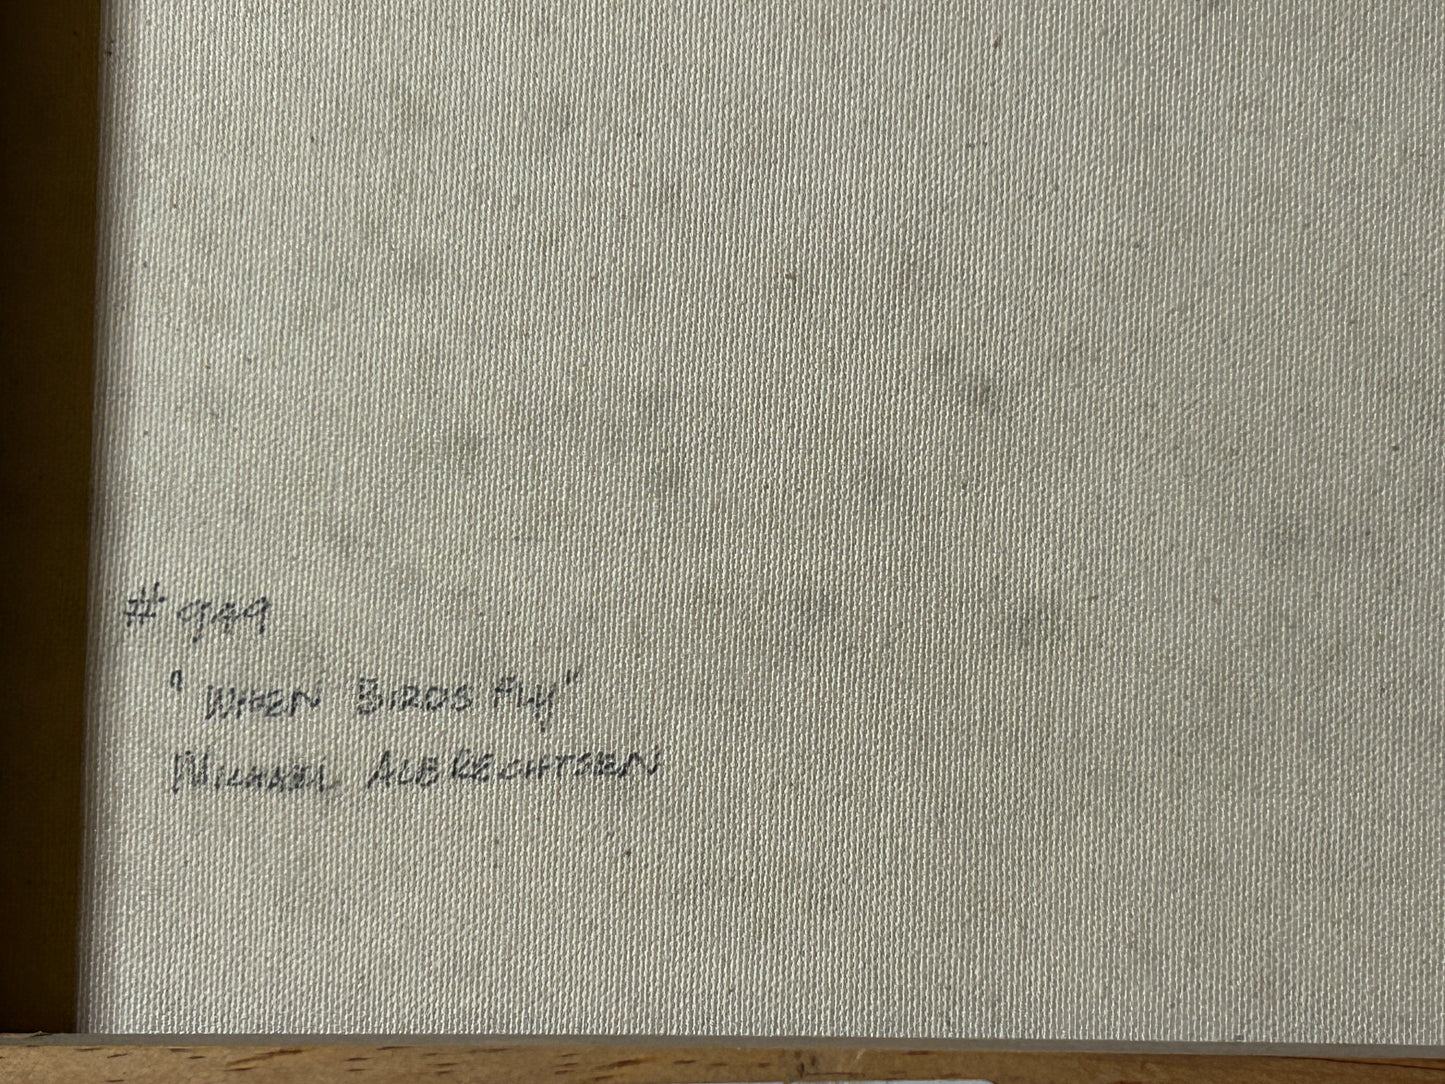 # 949
"WHEN BIRDS FLY"
MICHAEL ALBRECHTSEN